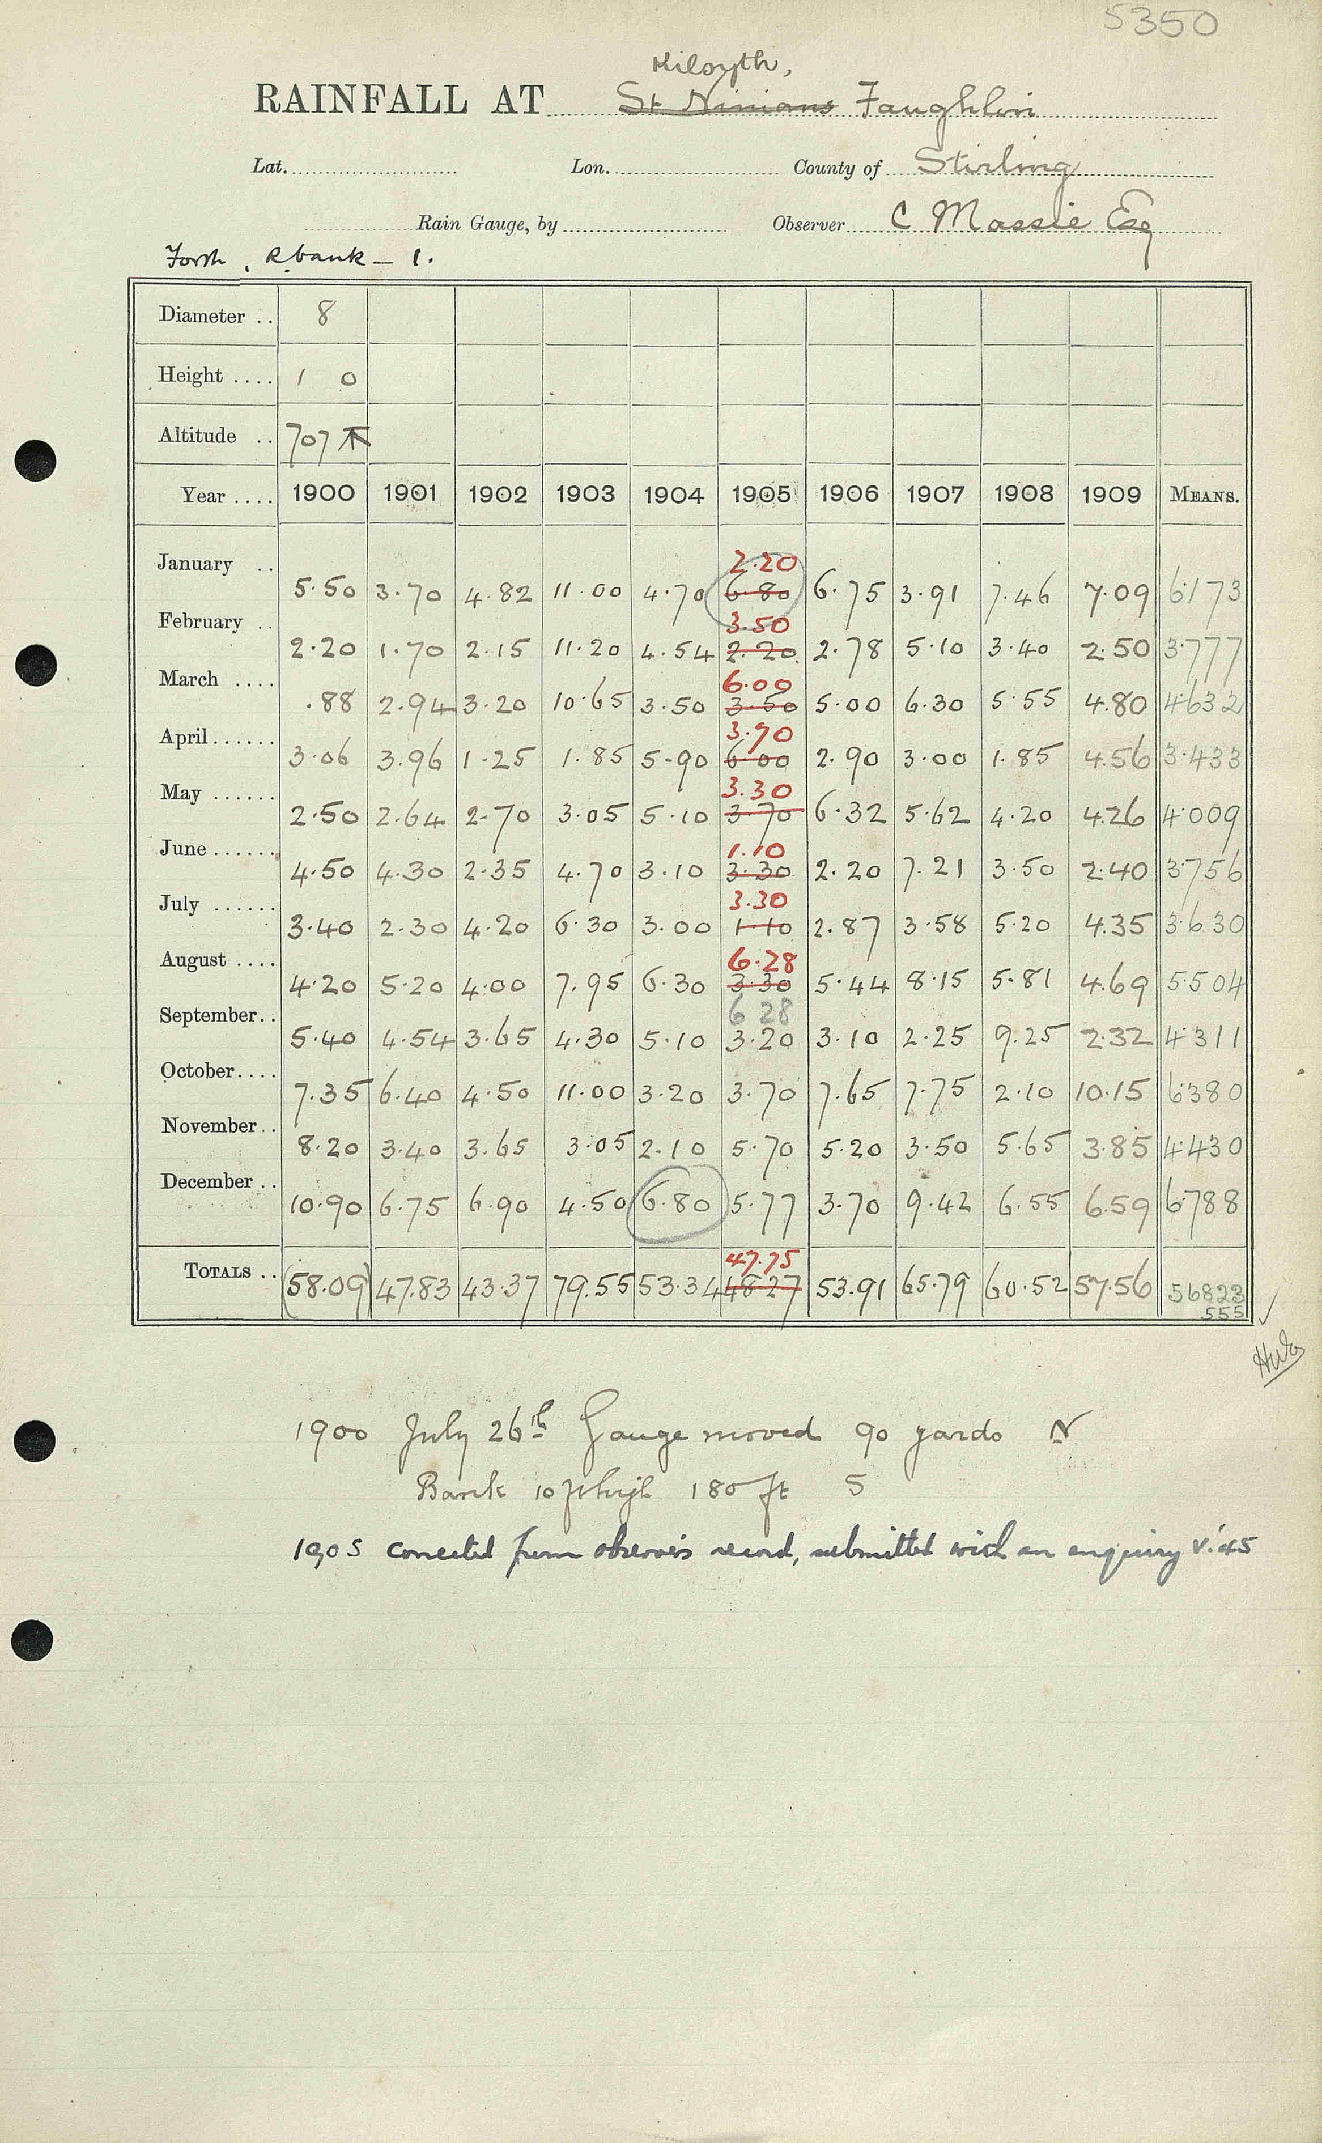 5350
Kilsyth,
RAINFALL AT St Ninians Faughlin
Lat. Lon. County of Stirling
Rain Gauge, by Observer C Massie Esq
Forth. Rbank - 1.
Diameter .. 8
Height .... 1 0
Altitude .. 707
Year .... 1900 1901 1902 1903 1904 1905 1906 1907 1908 1909 MEANS.
2.20
January .. 5.50 3.70 4.82 11.00 4.70 6.80 6.75 3.91 7.46 7.09 6.173
3.50
February .. 2.20 1.70 2.15 11.20 4.54 2.20 2.78 5.10 3.40 2.50 3.777
6.00
March .... .88 2.94 3.20 10.65 3.50 3.50 5.00 6.30 5.55 4.80 4.632
3.70
April ...... 3.06 3.96 1.25 1.85 5.90 6.00 2.90 3.00 1.85 4.56 3.433
3.30
May ...... 2.50 2.64 2.70 3.05 5.10 3.70 6.32 5.62 4.20 4.26 4.009
1.10
June ...... 4.50 4.30 2.35 4.70 3.10 3.30 2.20 7.21 3.50 2.40 3.756
3.30
July ...... 3.40 2.30 4.20 6.30 3.00 1.10 2.87 3.58 5.20 4.35 3.630
6.28
August .... 4.20 5.20 4.00 7.95 6.30 3.30 5.44 8.15 5.81 4.69 5.504
6 28
September .. 5.40 4.54 3.65 4.30 5.10 3.20 3.10 2.25 9.25 2.32 4.311
October .... 7.35 6.40 4.50 11.00 3.20 3.70 7.65 7.75 2.10 10.15 6.380
November .. 8.20 3.40 3.65 3.05 2.10 5.70 5.20 3.50 5.65 3.85 4.430
December .. 10.90 6.75 6.90 4.50 6.80 5.77 3.70 9.42 6.55 6.59 6.788
47.75
TOTALS .. (58.09) 47.83 43.37 79.55 53.34 48.27 53.91 65.79 60.52 57.56 56823
555
1900 July 26th Gauge moved 90 yards N
Bank 10 ft high 180 ft S
1905 corrected from observer's record, submitted with an enquiry v.'45